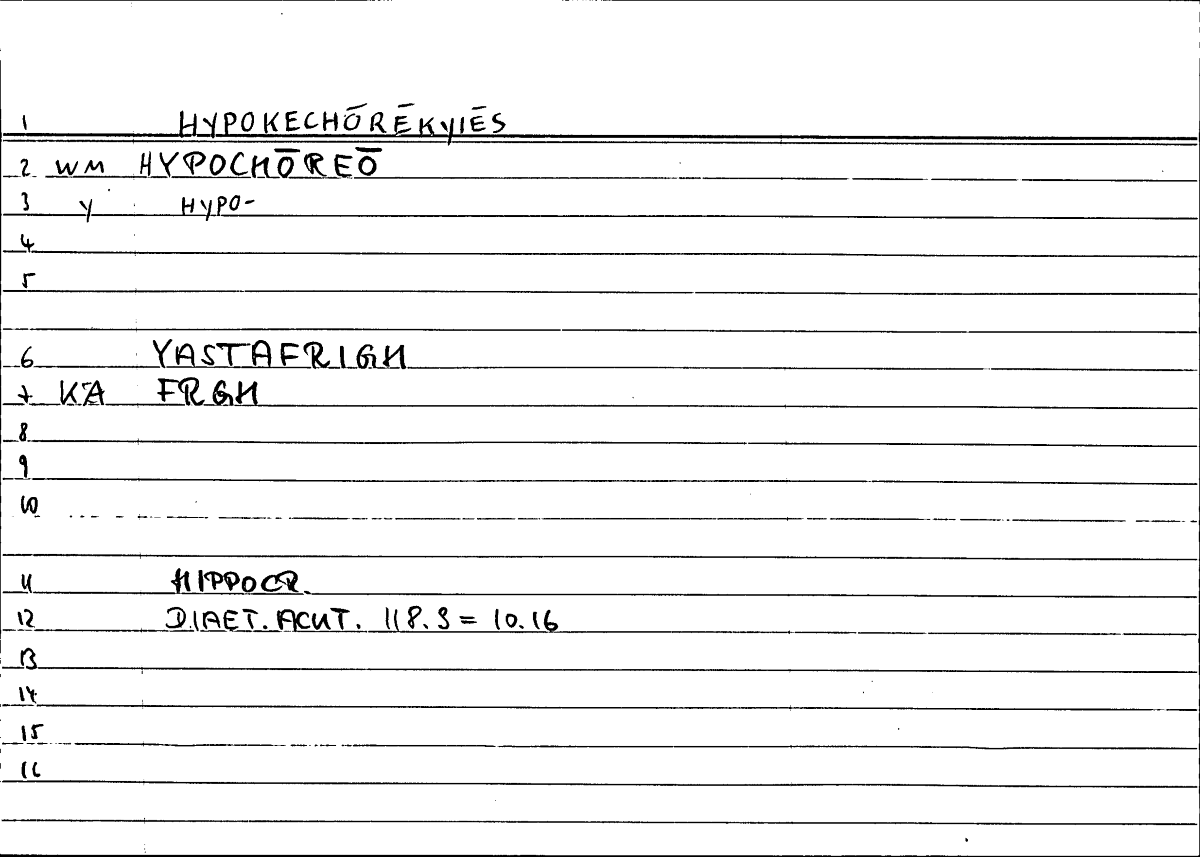 1 HYPOKECHŌRĒKYIĒS
2 WM HYPOCHŌREŌ
3 Y HYPO-
4
5
6 YASTAFRIGH
7 KA FRGH
8
9
10
11 HIPPOCR.
12 DIAET. ACUT. 118.9 = 10.16
13
14
15
16